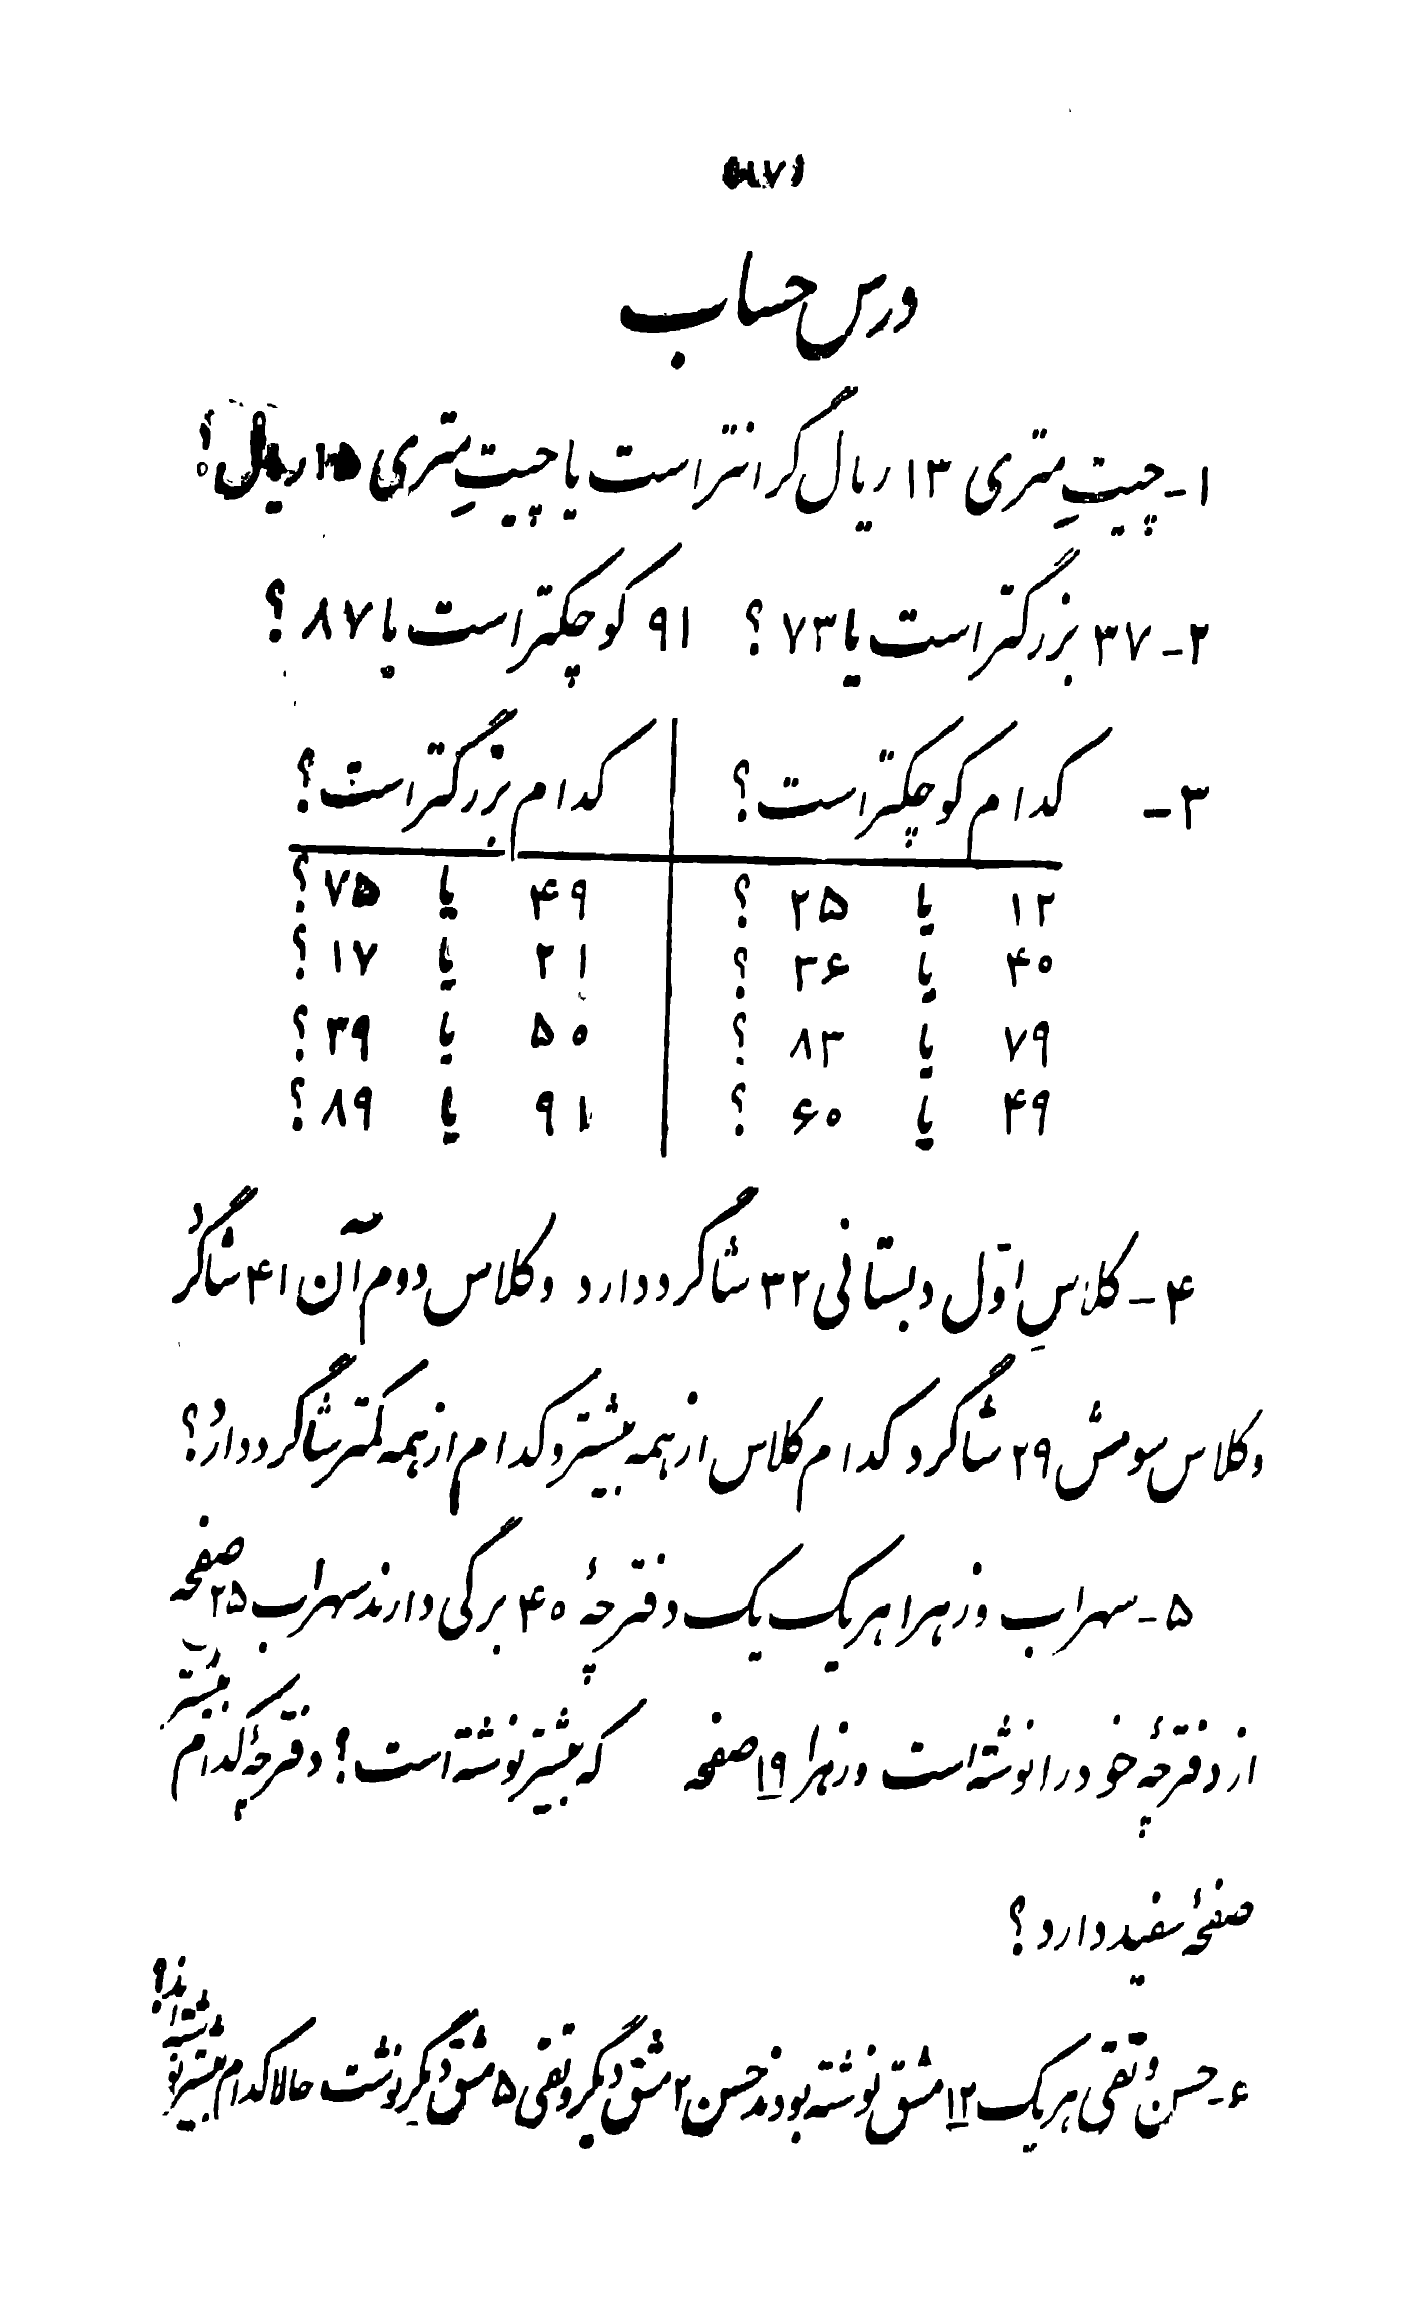 درس حساب
۱- چیتِ متری ۱۳ ریال گرانتر است یا چیتِ متری ۱۵ ریال؟
۲- ۳۷ بزرگتر است یا ۷۳؟ ۹۱ کوچکتر است یا ۸۷؟
۳- کدام کوچکتر است؟ کدام بزرگتر است؟
۱۲ یا ۲۵؟ ۴۹ یا ۷۵؟
۴۰ یا ۳۶؟ ۲۱ یا ۱۷؟
۷۹ یا ۸۳؟ ۵۰ یا ۳۹؟
۴۹ یا ۶۰؟ ۹۱ یا ۸۹؟
۴- کلاسِ اوّل دبستانی ۳۲ شاگرد دارد و کلاس دوم آن ۴۱ شاگرد
و کلاس سومش ۲۹ شاگرد کدام کلاس از همه بیشتر و کدام از همه کمتر شاگرد دارد؟
۵- سهراب و زهرا هر یک یک دفترچهٔ ۴۰ برگی دارند سهراب ۲۵ صفحه
از دفترچهٔ خود را نوشته است و زهرا ۱۹ صفحه که بیشتر نوشته است؟ دفترچهٔ کدام بیشتر
صفحهٔ سفید دارد؟
۶- حسن و تقی هر یک ۱۲ مشق نوشته بودند حسن ۲ مشق دیگر و تقی ۵ مشق دیگر نوشت حالا کدام بیشتر نوشته‌اند؟